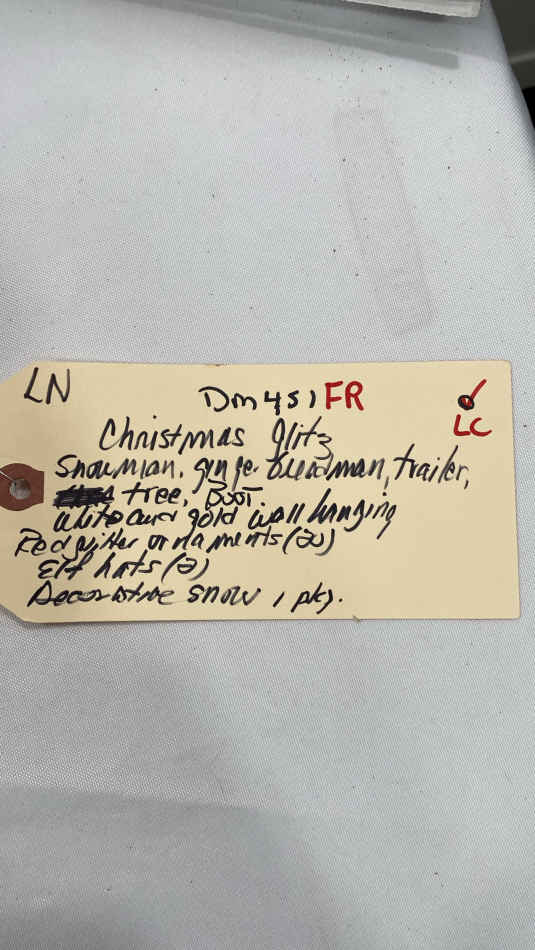 LN
Dm451 FR
LC
Christmas Glitz
Snowman, ginger breadman, trailer,
tree, Boot.
White and gold wall hanging
Red glitter ornaments (20)
Elf hats (2)
Decorative snow 1 pkg.